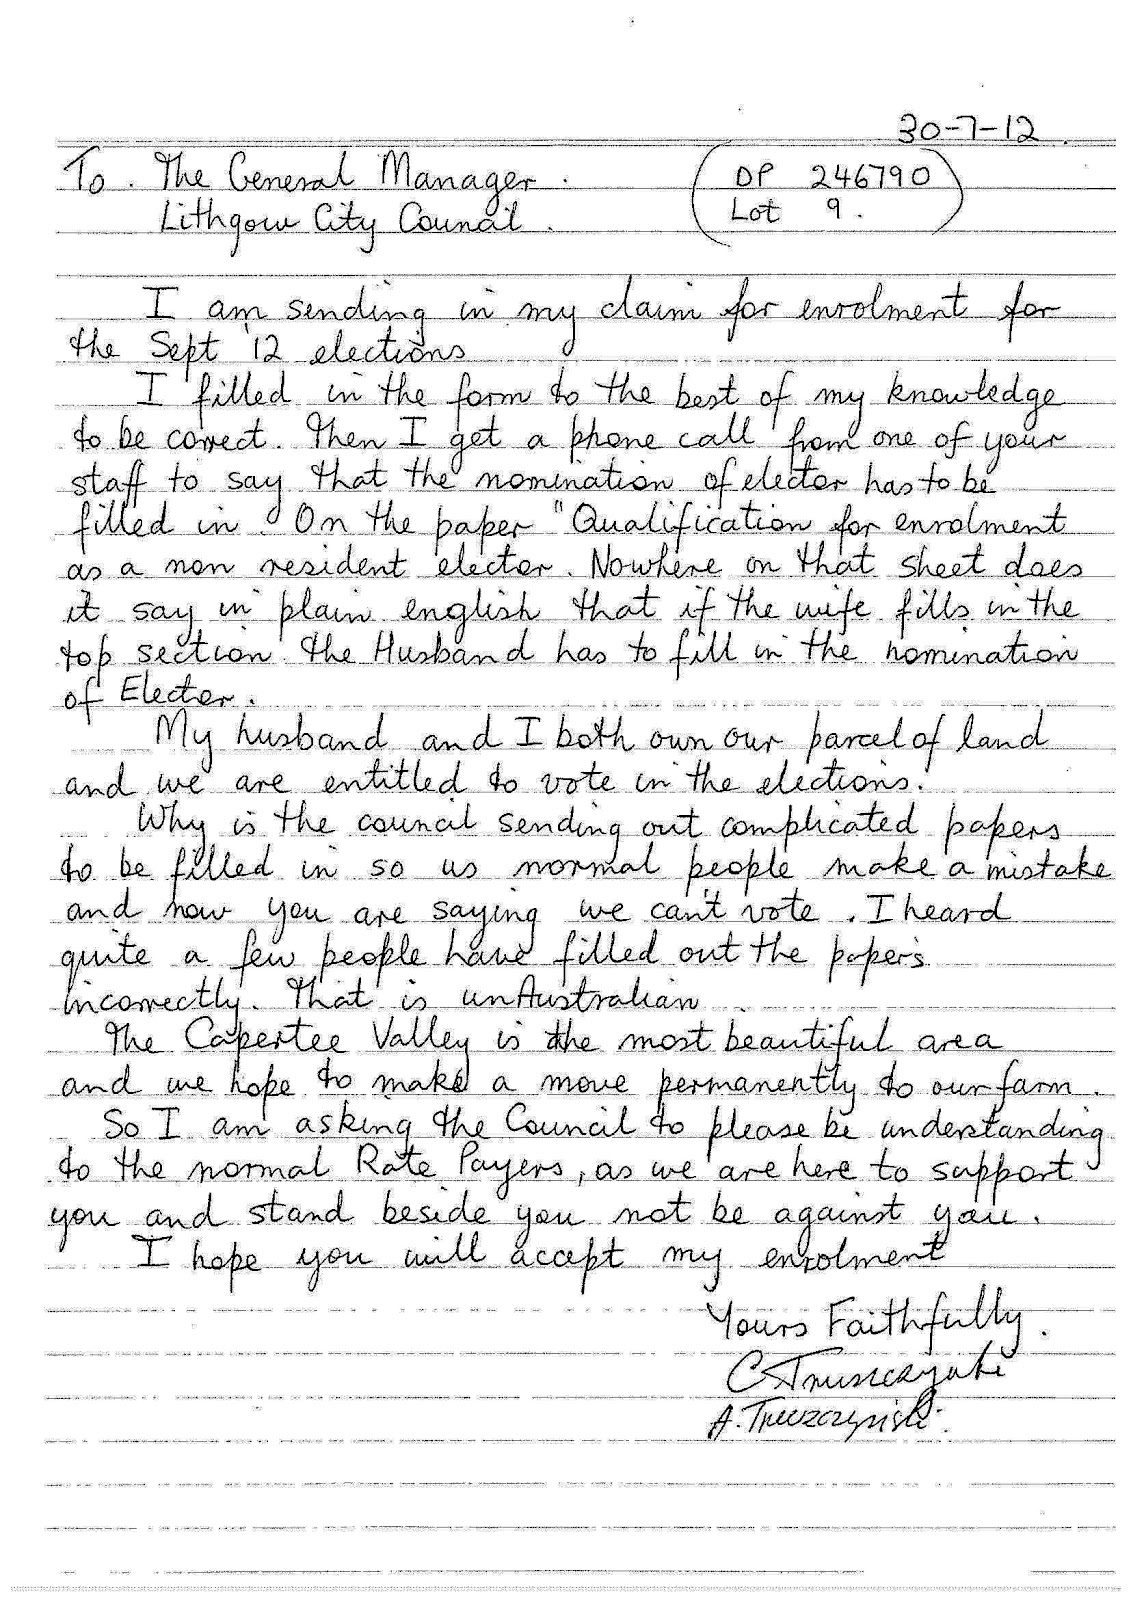 30-7-12
To. The General Manager. DP 246790
Lithgow City Council. Lot 9.
I am sending in my claim for enrolment for
the Sept 12 elections
I filled in the form to the best of my knowledge
to be correct. Then I get a phone call from one of your
staff to say that the nomination of elector has to be
filled in. On the paper "Qualification for enrolment
as a non resident elector. Nowhere on that sheet does
it say in plain english that if the wife fills in the
top section the Husband has to fill in the nomination
of Elector.
My husband and I both own our parcel of land
and we are entitled to vote in the elections.
Why is the council sending out complicated papers
to be filled in so us normal people make a mistake
and now you are saying we can't vote. I heard
quite a few people have filled out the papers
incorrectly. That is unAustralian
The Capertee Valley is the most beautiful area
and we hope to make a move permanently to our farm.
So I am asking the Council to please be understanding
to the normal Rate Payers, as we are here to support
you and stand beside you not be against you.
I hope you will accept my enrolment
Yours Faithfully.
C
A.